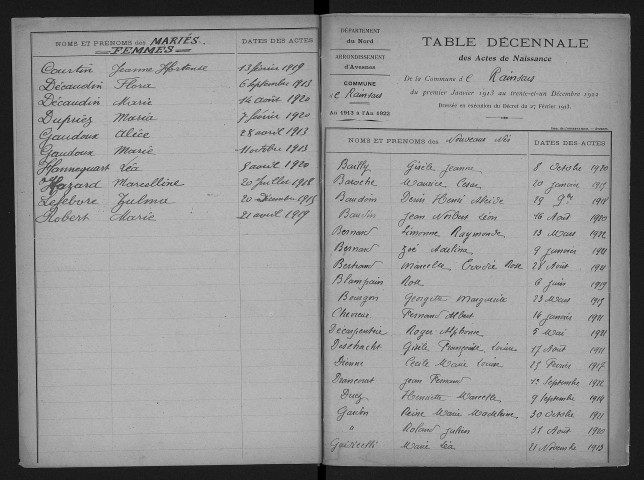 NOMS ET PRÉNOMS des MARIÉS. FEMMES DATES DES ACTES
Courtin Jeanne Hortense 13 février 1919
Décaudin Flora 6 septembre 1913
Décaudin Marie 14 août 1920
Dupriez Maria 7 février 1920
Gaudoux Alice 28 avril 1913
Gaudoux Marie 11 octobre 1913
Hannequart Léa 8 avril 1920
Hazard Marcelline 20 juillet 1918
Lefebvre Zulma 20 décembre 1915
Robert Marie 21 avril 1919
DÉPARTEMENT
du Nord
ARRONDISSEMENT
d'Avesnes
COMMUNE
de Rainsars
An 1913 à l'An 1922
TABLE DÉCENNALE
des Actes de Naissance
De la Commune de Rainsars
du premier Janvier 1913 au trente-et-un Décembre 1922
Dressée en exécution du Décret du 27 Février 1913.
NOMS ET PRÉNOMS des Nouveaux Nés DATES DES ACTES
Bailly Gisèle Jeanne 8 Octobre 1920
Baroche Maurice César 20 janvier 1915
Baudoin Denis Henri 19 9bre
Baudin Jean Norbert Léon 16 Août 1920
Bernard Simonne Raymonde 13 Mars 1922
Bernard Zoé 9 janvier 1921
Bertrand Marcelle Rose 28 Août 1921
Blampain Rose 6 juin 1919
Bourgon Georgette Marguerite 23 Mars 1915
Fernand Albert 14 janvier 1921
Decarpentrie Roger Alphonse 5 Mai 1921
Gisèle Françoise Louise 17 Août 1921
Cécile Marie Louise 15 Février 1917
Jean Fernand 1er Septembre 1922
Henriette Marcelle 9 Septembre 1914
Reine Marie Madeleine 30 Octobre 1921
Roland Julien 31 Août 1920
Marie Léa 21 Novembre 1913